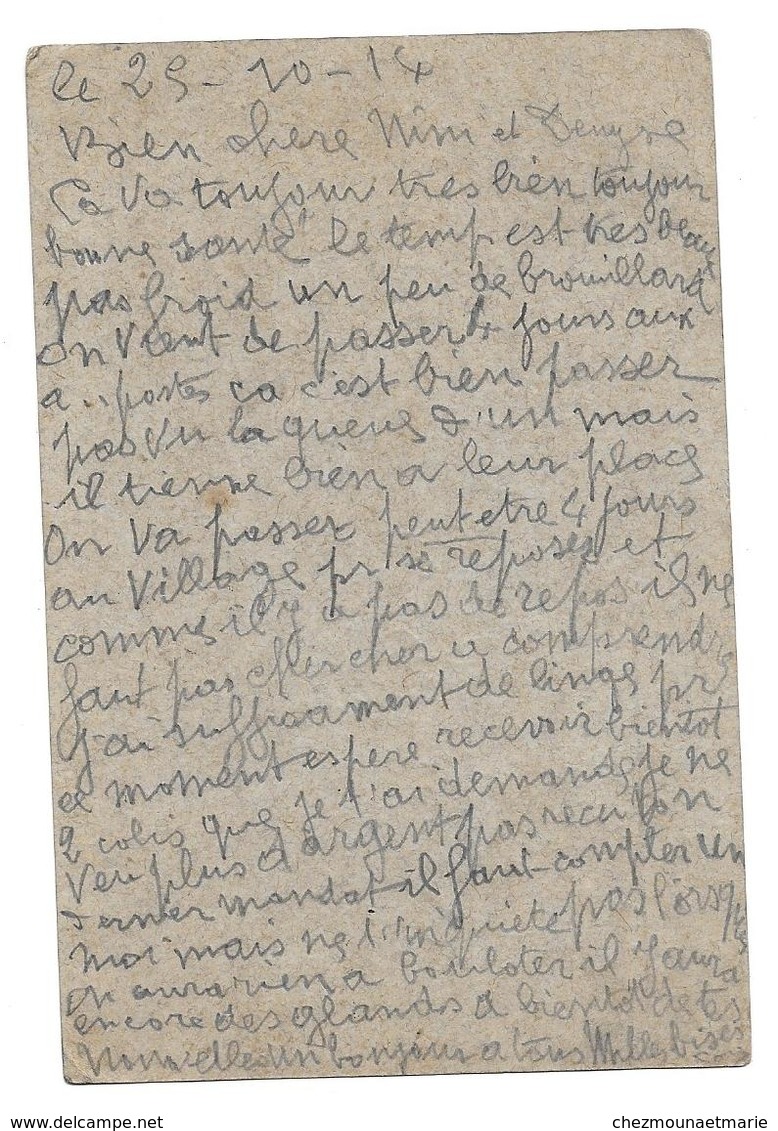 le 25-10-14
Bien chere Nini et Denyse
Ca va toujour tres bien toujour
bonne santé le temp est tres beau
pas froid un peu de brouillard
on vient de passer 4 jours aux
a.. postes ca c'est bien passer
pas vu la queue d'un mais
il tienne bien a leur place
On va passer peut etre 4 jours
au village pr se reposes et
comme il y a pas de repos il ne
faut pas chercher a comprendre
j'ai sufficament de linge pr
ce moment espere recevoir bientot
2 colis que je t'ai demande je ne
veu plus d'argent pas recu ton
dernier mandat il faut compter un
moi mais ne t'inquiete pas l'orsque
on aura rien a bouloter il y aura
encore des glands a bientot de tes
nouvelle un bonjour a tous Milles bises
chezmounaetmarie